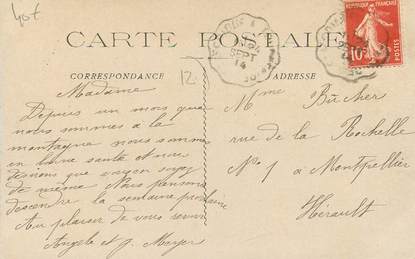 40f
CARTE POSTALE
RÉPUBLIQUE FRANÇAISE
10
POSTES
SEPT
14
CORRESPONDANCE
12
ADRESSE
Madame
Depuis un mois que
nous sommes à la
montagne nous sommes
en bonne santé et nous
désirons que vous en soyez
de même Nous pensons
descendre la semaine prochaine
Au plaisir de vous revoir
Angèle et J. Meyer
Mme Bücher
rue de la Rochelle
No 1 à Montpellier
Hérault